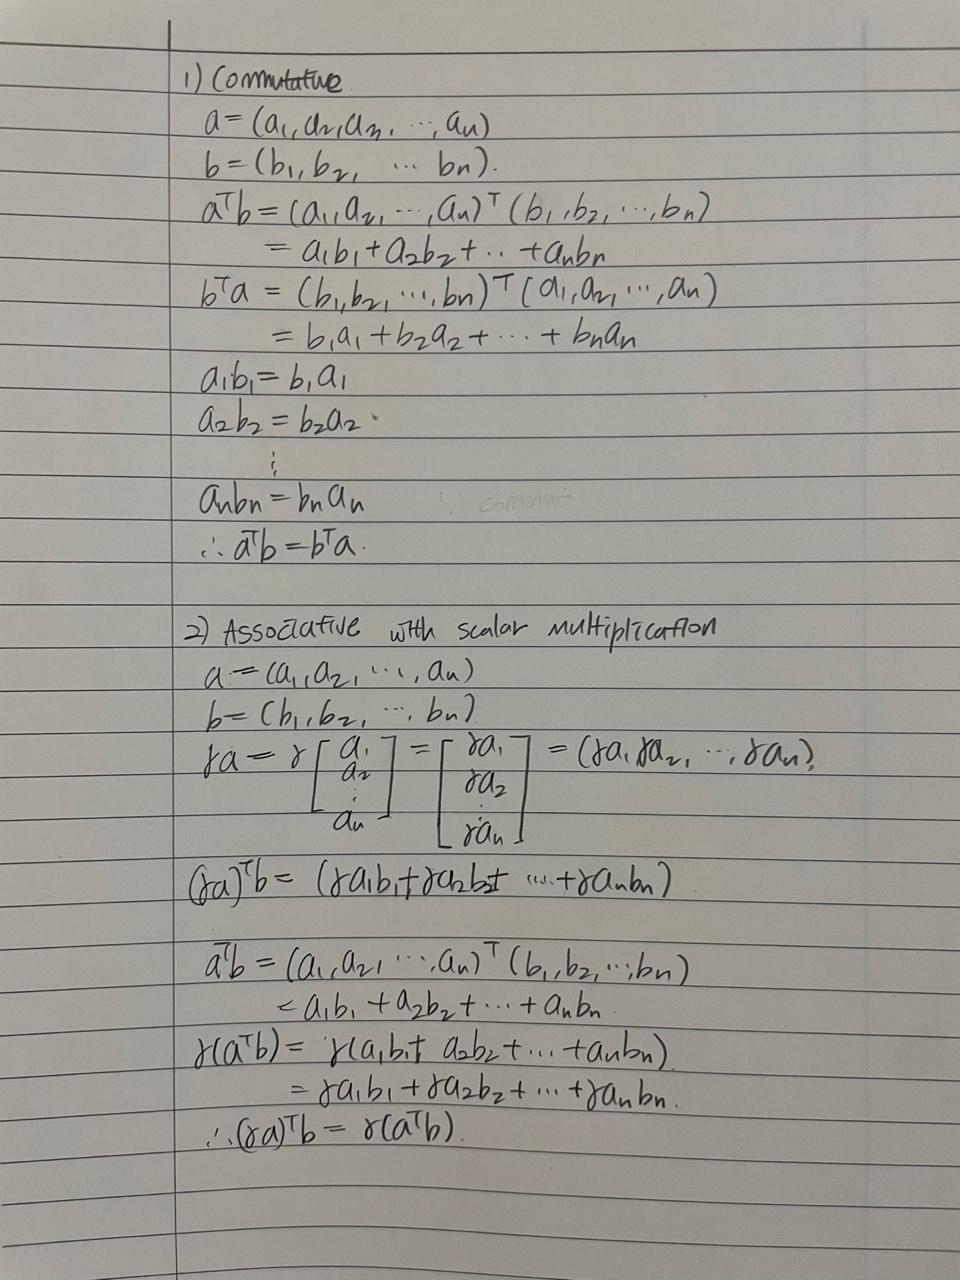 1) Commutative
a = (a₁, a₂, a₃, ..., aₙ)
b = (b₁, b₂, ... bₙ).
aᵀb = (a₁, a₂, ..., aₙ)ᵀ (b₁, b₂, ..., bₙ)
= a₁b₁ + a₂b₂ + .. + aₙbₙ
bᵀa = (b₁, b₂, ..., bₙ)ᵀ (a₁, a₂, ..., aₙ)
= b₁a₁ + b₂a₂ + ... + bₙaₙ
a₁b₁ = b₁a₁
a₂b₂ = b₂a₂
⋮
aₙbₙ = bₙaₙ
∴ aᵀb = bᵀa.
2) Associative with scalar multiplication
a = (a₁, a₂, ..., aₙ)
b = (b₁, b₂, ..., bₙ)
γa = γ [a₁ a₂ ⋮ aₙ] = [γa₁ γa₂ ⋮ γaₙ] = (γa₁, γa₂, ..., γaₙ).
(γa)ᵀb = (γa₁b₁ + γa₂b₂ + ... + γaₙbₙ)
aᵀb = (a₁, a₂, ..., aₙ)ᵀ (b₁, b₂, ..., bₙ)
= a₁b₁ + a₂b₂ + ... + aₙbₙ
γ(aᵀb) = γ(a₁b₁ + a₂b₂ + ... + aₙbₙ)
= γa₁b₁ + γa₂b₂ + ... + γaₙbₙ.
∴ (γa)ᵀb = γ(aᵀb).